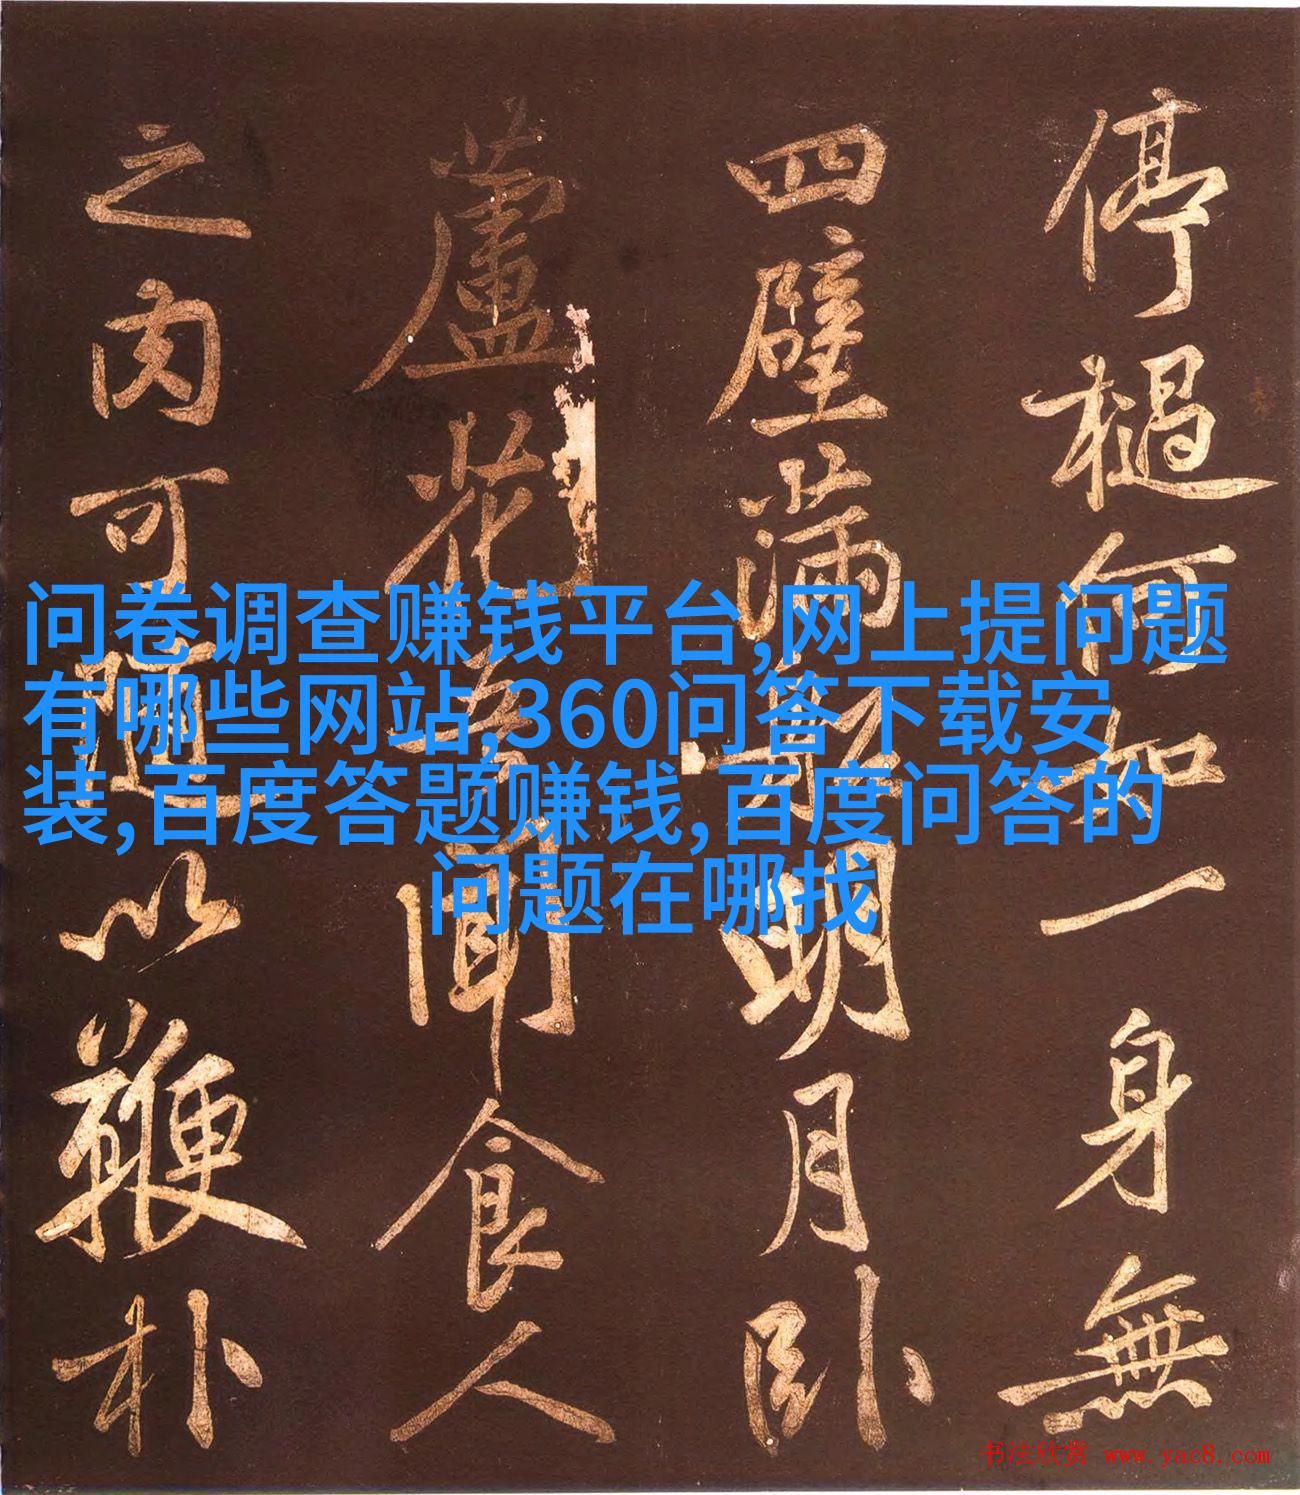 问卷调查赚钱平台,网上提问题
有哪些网站,360问答下载安
装,百度答题赚钱,百度问答的
问题在哪找
停檛何如一身無
四壁滿船明月卧
蘆花吾聞食人
之肉可隨以鞭朴
书法欣赏 www.yac8.com